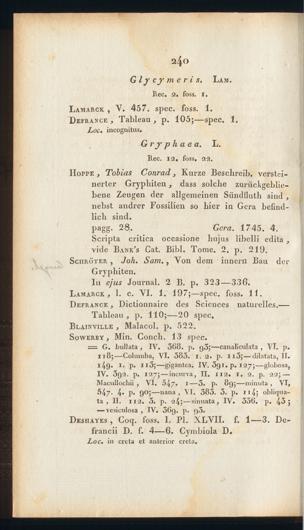 240
Glycymeris. Lam.
Rec. 2. foss. 1.
Lamarck, V. 457. spec. foss. 1.
Defrance, Tableau, p. 105;—spec. 1.
Loc. incognitus.
Gryphaea. L.
Rec. 12. foss. 22.
Hoppe, Tobias Conrad, Kurze Beschreib. verstei-
nerter Gryphiten, dass solche zurückgeblie-
bene Zeugen der allgemeinen Sündfluth sind,
nebst andrer Fossilien so hier in Gera befind-
lich sind.
pagg. 28. Gera. 1745. 4.
Scripta critica occasione hujus libelli edita,
vide Bank's Cat. Bibl. Tome. 2. p. 219.
Schröter, Joh. Sam., Von dem innern Bau der
Gryphiten.
In ejus Journal. 2 B. p. 323—336.
Lamarck, l. c. VI. 1. 197;—spec. foss. 11.
Defrance, Dictionnaire des Sciences naturelles.—
Tableau, p. 110;—20 spec.
Blainville, Malacol. p. 522.
Sowerby, Min. Conch. 13 spec.
= G. bullata, IV. 368. p. 93;—canaliculata, VI. p.
118;—Columba, VI. 383. 1. 2. p. 113;—dilatata, II.
149. 1. p. 113;—gigantea, IV. 391. p. 127;—globosa,
IV. 392. p. 127;—incurva, II. 112. 1. 2. p. 22;—
Maccullochii, VI. 547. 1—3. p. 89;—minuta, VI,
547. 4. p. 90;—nana, VI. 383. 3. p. 114; obliqua-
ta, II. 112. 3. p. 24;—sinuata, IV. 336. p. 43;
—vesiculosa, IV. 369. p. 93.
Deshayes, Coq. foss. I. Pl. XLVII. f. 1—3. De-
francii D. f. 4—6. Cymbiola D.
Loc. in creta et anterior creta.